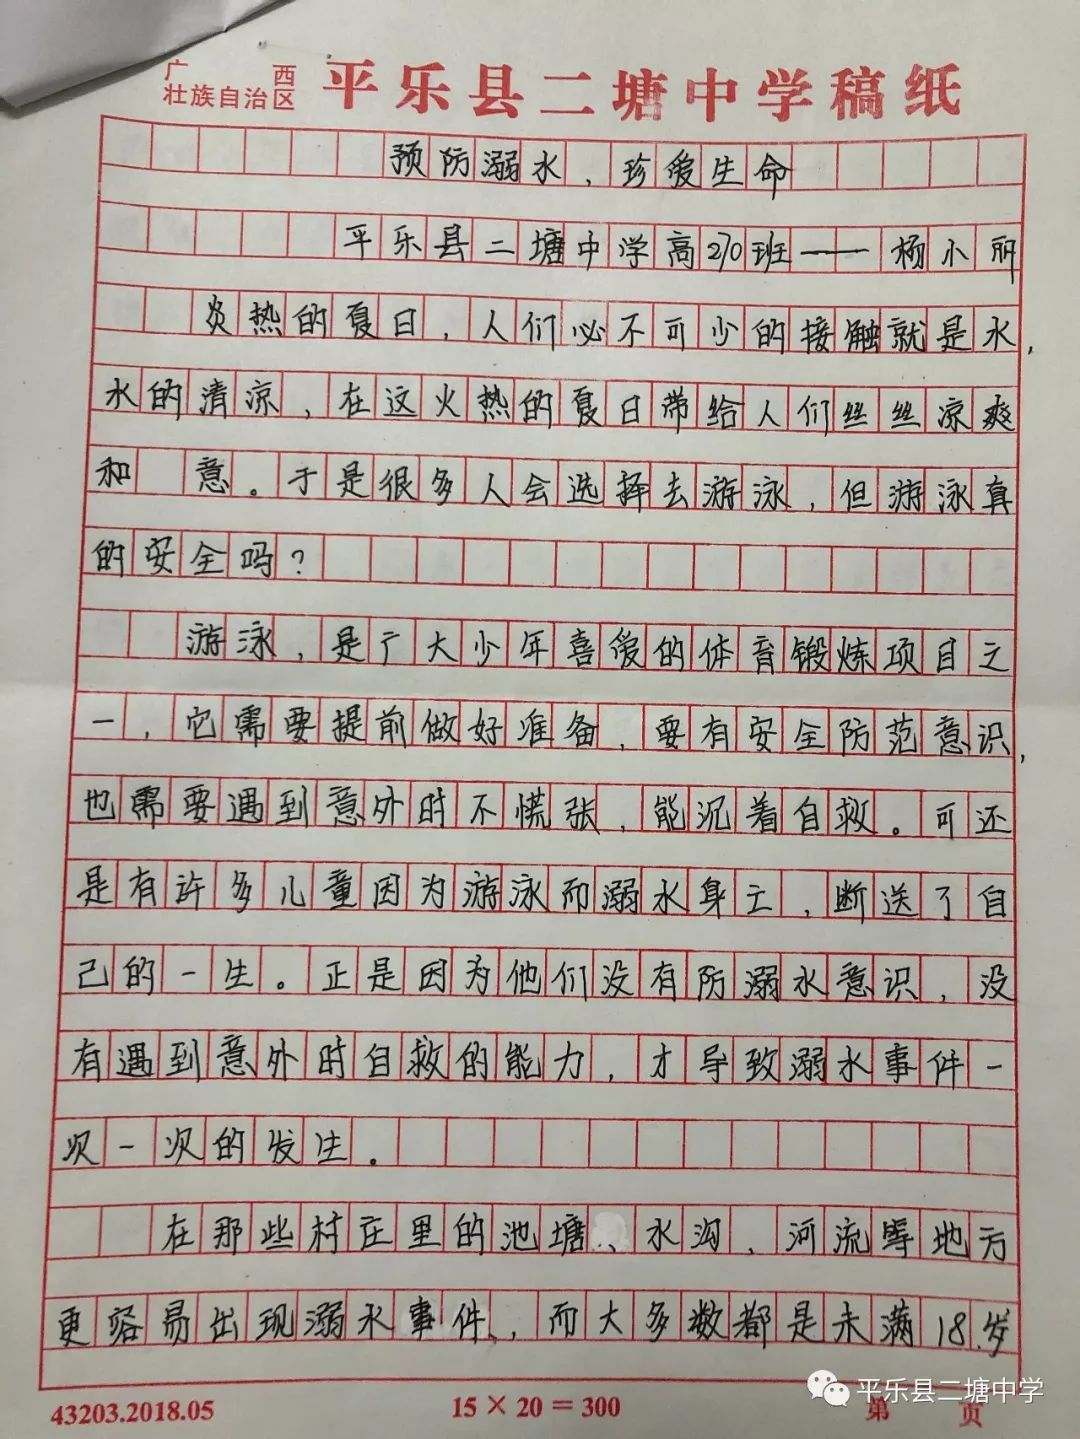 广西
壮族自治区
平乐县二塘中学稿纸
预防溺水，珍爱生命
平乐县二塘中学高270班——杨小丽
炎热的夏日，人们必不可少的接触就是水，
水的清凉，在这火热的夏日带给人们丝丝凉爽
和 意。于是很多人会选择去游泳，但游泳真
的安全吗？
游泳，是广大少年喜爱的体育锻炼项目之
一，它需要提前做好准备，要有安全防范意识，
也需要遇到意外时不慌张，能沉着自救。可还
是有许多儿童因为游泳而溺水身亡，断送了自
己的一生。正是因为他们没有防溺水意识，没
有遇到意外时自救的能力，才导致溺水事件一
次一次的发生。
在那些村庄里的池塘、水沟，河流等地方
更容易出现溺水事件，而大多数都是未满18岁
43203.2018.05
15×20=300
第 页
平乐县二塘中学